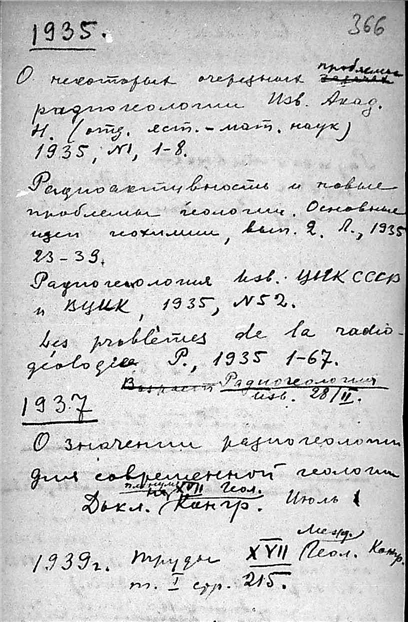 366
1935.
О некоторых очередных проблемах задачах
радиогеологии Изв. Акад.
Н. (отд. ест.-мат. наук)
1935, №1, 1-8.
Радиоактивность и новые
проблемы геологии. Основные
идеи геохимии, вып. 2. Л., 1935
23-39.
Радиогеология Изв. ЦИК СССР
и ВЦИК, 1935, №52.
Les problèmes de la radio-
géologie P., 1935 1-67.
Радиогеология
Изв. 28/II.
1937
О значении радиогеологии
для современной геологии
XVII Геол.
Докл. Конгр. Июль
Межд.
1939г. Труды XVII Геол. Конгр.
т. I стр. 215.